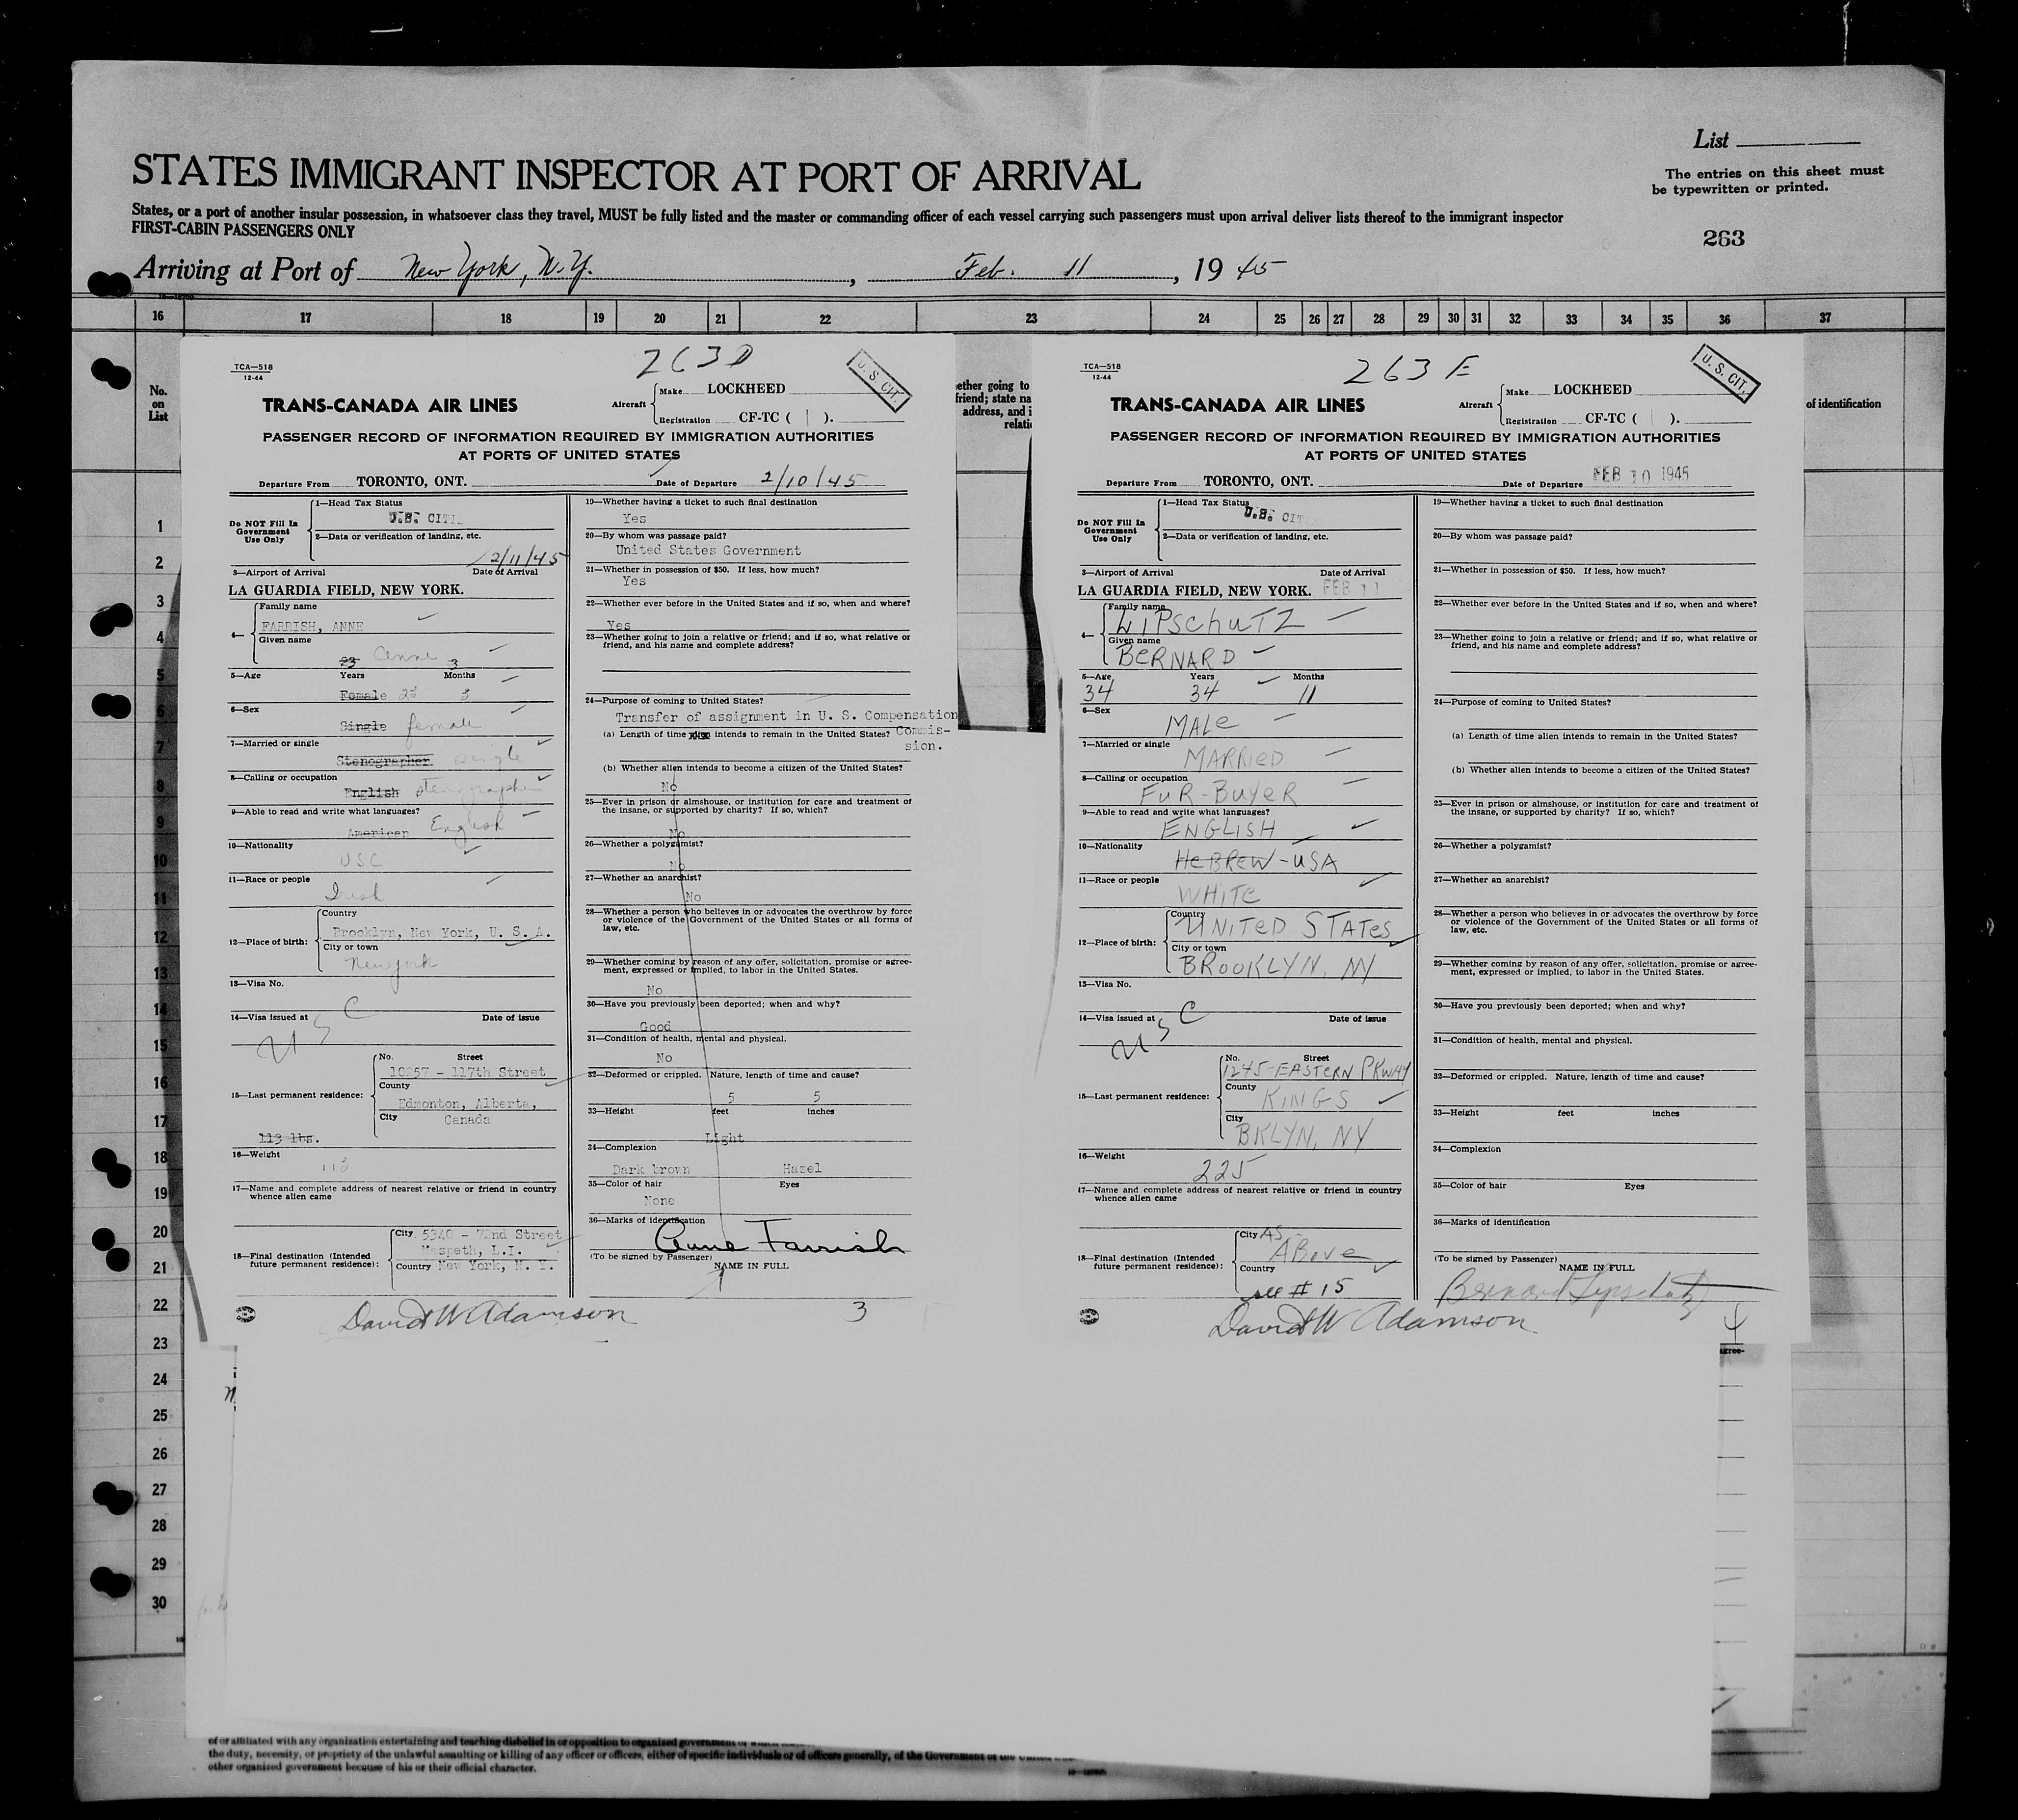 List
The entries on this sheet must
be typewritten or printed.
STATES IMMIGRANT INSPECTOR AT PORT OF ARRIVAL
States, or a port of another insular possession, in whatsoever class they travel, MUST be fully listed and the master or commanding officer of each vessel carrying such passengers must upon arrival deliver lists thereof to the immigrant inspector
FIRST-CABIN PASSENGERS ONLY
263
Arriving at Port of New York, N.Y., Feb. 11, 1945
16 17 18 19 20 21 22 23 24 25 26 27 28 29 30 31 32 33 34 35 36 37
No.
on
List
1
2
3
4
5
6
7
8
9
10
11
12
13
14
15
16
17
18
19
20
21
22
23
24
25
26
27
28
29
30
263D
TCA—518
12-44
U. S. CIT.
Make LOCKHEED
TRANS-CANADA AIR LINES
Aircraft
Registration CF-TC ( ).
PASSENGER RECORD OF INFORMATION REQUIRED BY IMMIGRATION AUTHORITIES
AT PORTS OF UNITED STATES
Departure From TORONTO, ONT. Date of Departure 2/10/45
Do NOT Fill In
Government
Use Only
1—Head Tax Status
U.S. CIT
2—Data or verification of landing, etc.
2/11/45
3—Airport of Arrival Date of Arrival
LA GUARDIA FIELD, NEW YORK.
4—
Family name
FARRISH, ANNE
Given name
23 Anne 3
5—Age Years Months
Female 23 3
6—Sex
Single female
7—Married or single
Stenographer single
8—Calling or occupation
English stenographer
9—Able to read and write what languages?
American English
10—Nationality
USC
11—Race or people
Irish
12—Place of birth:
Country
Brooklyn, New York, U. S. A.
City or town
New York
13—Visa No.
14—Visa issued at Date of issue
U S C
15—Last permanent residence:
No. Street
10257 - 117th Street
County
Edmonton, Alberta,
City Canada
113 lbs.
16—Weight
113
17—Name and complete address of nearest relative or friend in country
whence alien came
18—Final destination (Intended
future permanent residence):
City 5340 - 72nd Street
Maspeth, L.I.
Country New York, N. Y.
David W Adamson
19—Whether having a ticket to such final destination
Yes
20—By whom was passage paid?
United States Government
21—Whether in possession of $50. If less, how much?
Yes
22—Whether ever before in the United States and if so, when and where?
Yes
23—Whether going to join a relative or friend; and if so, what relative or
friend, and his name and complete address?
24—Purpose of coming to United States?
Transfer of assignment in U. S. Compensation
(a) Length of time intends to remain in the United States? Commis-
sion.
(b) Whether alien intends to become a citizen of the United States?
No
25—Ever in prison or almshouse, or institution for care and treatment of
the insane, or supported by charity? If so, which?
No
26—Whether a polygamist?
No
27—Whether an anarchist?
No
28—Whether a person who believes in or advocates the overthrow by force
or violence of the Government of the United States or all forms of
law, etc.
29—Whether coming by reason of any offer, solicitation, promise or agree-
ment, expressed or implied, to labor in the United States.
No
30—Have you previously been deported; when and why?
Good
31—Condition of health, mental and physical.
No
32—Deformed or crippled. Nature, length of time and cause?
5 5
33—Height feet inches
Light
34—Complexion
Dark brown Hazel
35—Color of hair Eyes
None
36—Marks of identification
Anne Farrish
(To be signed by Passenger)
NAME IN FULL
3
ether going to
friend; state na
address, and i
relati
263E
TCA—518
12-44
U. S. CIT.
Make LOCKHEED
TRANS-CANADA AIR LINES
Aircraft
Registration CF-TC ( ).
of identification
PASSENGER RECORD OF INFORMATION REQUIRED BY IMMIGRATION AUTHORITIES
AT PORTS OF UNITED STATES
Departure From TORONTO, ONT. Date of Departure FEB 10 1945
Do NOT Fill In
Government
Use Only
1—Head Tax Status
U.S. CIT
2—Data or verification of landing, etc.
3—Airport of Arrival Date of Arrival
LA GUARDIA FIELD, NEW YORK. FEB 11
4—
Family name
LIPSCHUTZ
Given name
BERNARD
5—Age Years Months
34 34 11
6—Sex
MALE
7—Married or single
MARRIED
8—Calling or occupation
FUR-BUYER
9—Able to read and write what languages?
ENGLISH
10—Nationality
HEBREW-USA
11—Race or people
WHITE
12—Place of birth:
Country
UNITED STATES
City or town
BROOKLYN, NY
13—Visa No.
14—Visa issued at Date of issue
U S C
15—Last permanent residence:
No. Street
1245-EASTERN PKWAY
County
KINGS
City
BKLYN, NY
16—Weight
225
17—Name and complete address of nearest relative or friend in country
whence alien came
18—Final destination (Intended
future permanent residence):
City AS
ABOVE
Country
see # 15
David W Adamson
19—Whether having a ticket to such final destination
20—By whom was passage paid?
21—Whether in possession of $50. If less, how much?
22—Whether ever before in the United States and if so, when and where?
23—Whether going to join a relative or friend; and if so, what relative or
friend, and his name and complete address?
24—Purpose of coming to United States?
(a) Length of time alien intends to remain in the United States?
(b) Whether alien intends to become a citizen of the United States?
25—Ever in prison or almshouse, or institution for care and treatment of
the insane, or supported by charity? If so, which?
26—Whether a polygamist?
27—Whether an anarchist?
28—Whether a person who believes in or advocates the overthrow by force
or violence of the Government of the United States or all forms of
law, etc.
29—Whether coming by reason of any offer, solicitation, promise or agree-
ment, expressed or implied, to labor in the United States.
30—Have you previously been deported; when and why?
31—Condition of health, mental and physical.
32—Deformed or crippled. Nature, length of time and cause?
33—Height feet inches
34—Complexion
35—Color of hair Eyes
36—Marks of identification
(To be signed by Passenger)
NAME IN FULL
Bernard Lipschutz
agree-
of or affiliated with any organization entertaining and teaching disbelief in or opposition to organized government
the duty, necessity, or propriety of the unlawful assaulting or killing of any officer or officers, either of specific individuals or of officers generally, of the Government of the United
other organized government because of his or their official character.